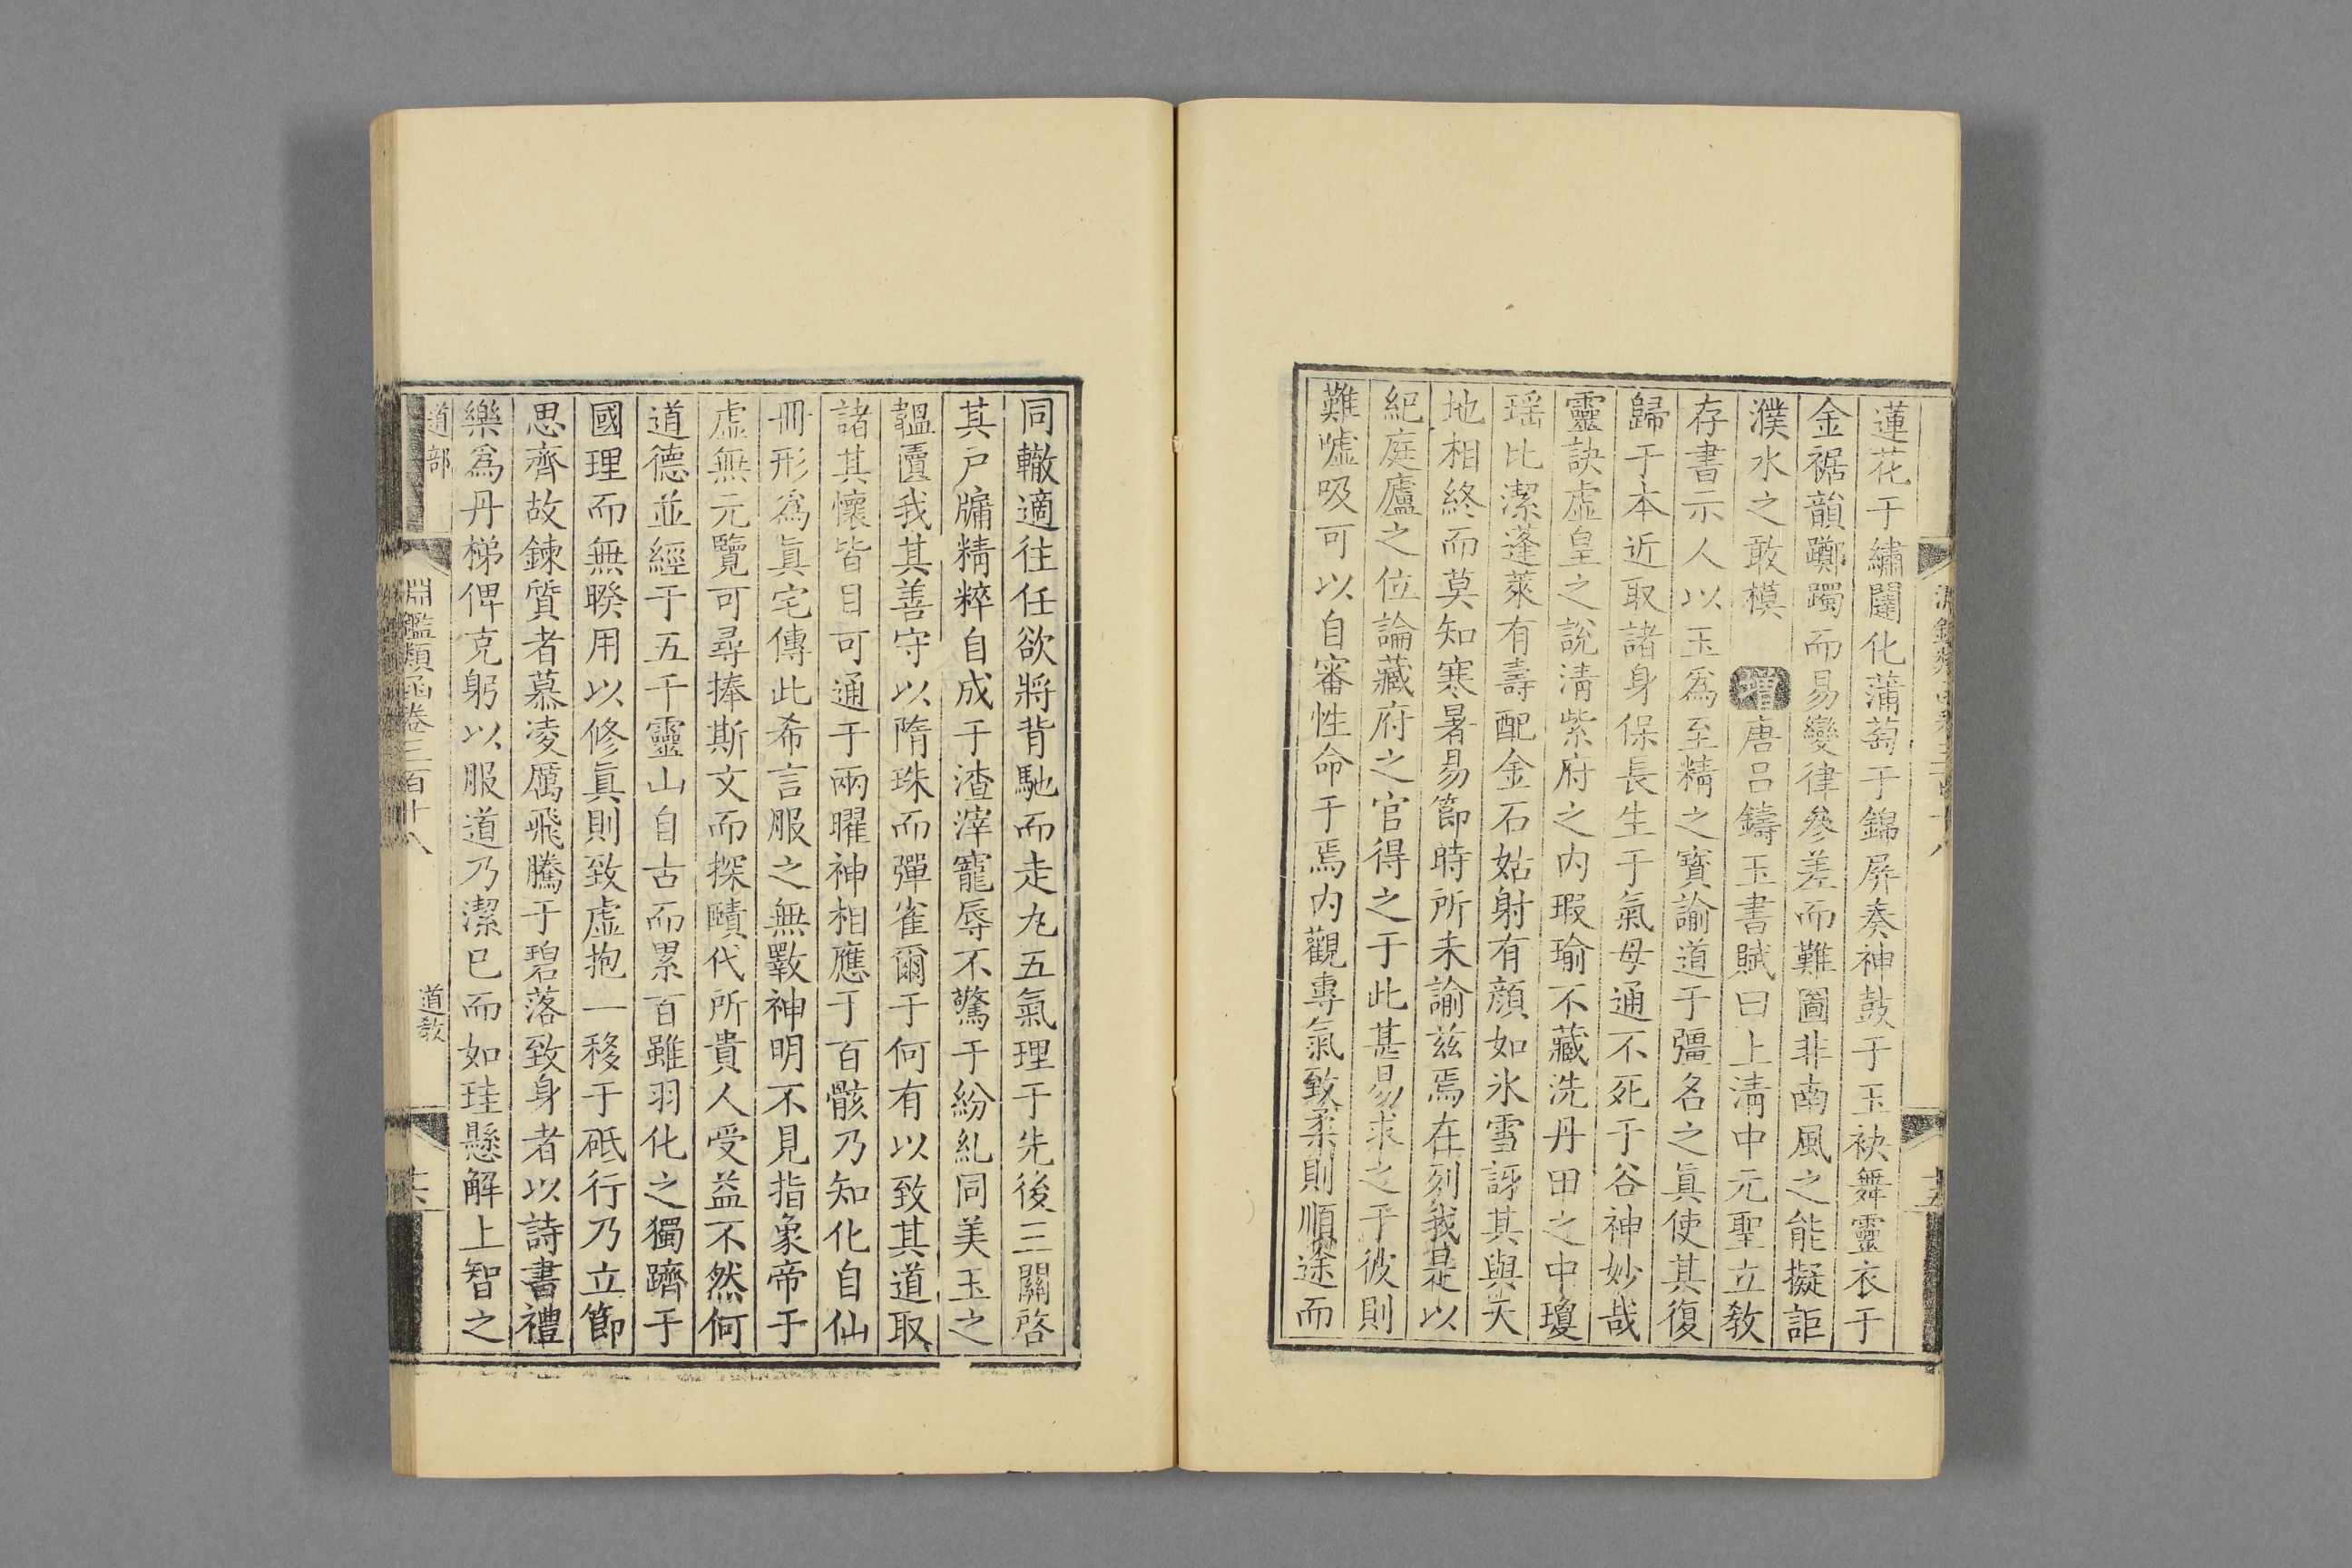 蓮花于繡闥化蒲萄于錦屏奏神鼓于玉袂舞靈衣于
金裾韻躑躅而易變律參差而難圖非南風之能擬詎
濮水之敢模 增唐呂鑄玉書賦曰上淸中元聖立敎
存書示人以玉爲至精之寶諭道于彊名之眞使其復
歸于本近取諸身保長生于氣母通不死于谷神妙哉
靈訣虛皇之說淸紫府之內瑕瑜不藏洗丹田之中瓊
瑶比潔蓬萊有壽配金石姑射有顔如氷雪訝其與天
地相終而莫知寒暑易節時所未諭兹焉在列我是以
紀庭廬之位論藏府之官得之于此甚易求之于彼則
難噓吸可以自審性命于焉內觀專氣致柔則順途而
同轍適往任欲將背馳而走丸五氣理于先後三關啓
其戸牖精粹自成于渣滓寵辱不驚于紛糺同美玉之
韞匵我其善守以隋珠而彈雀爾于何有以致其道取
諸其懷皆目可通于兩曜神相應于百骸乃知化自仙
冊形爲眞宅傳此希言服之無斁神明不見指象帝于
虛無元覽可尋捧斯文而探賾代所貴人受益不然何
道德並經于五千靈山自古而累百雖羽化之獨躋于
國理而無睽用以修眞則致虛抱一移于砥行乃立節
思齊故鍊質者慕凌厲飛騰于碧落致身者以詩書禮
樂爲丹梯俾克躬以服道乃潔已而如珪懸解上智之
道部 淵鑑類函卷三百十八 道敎